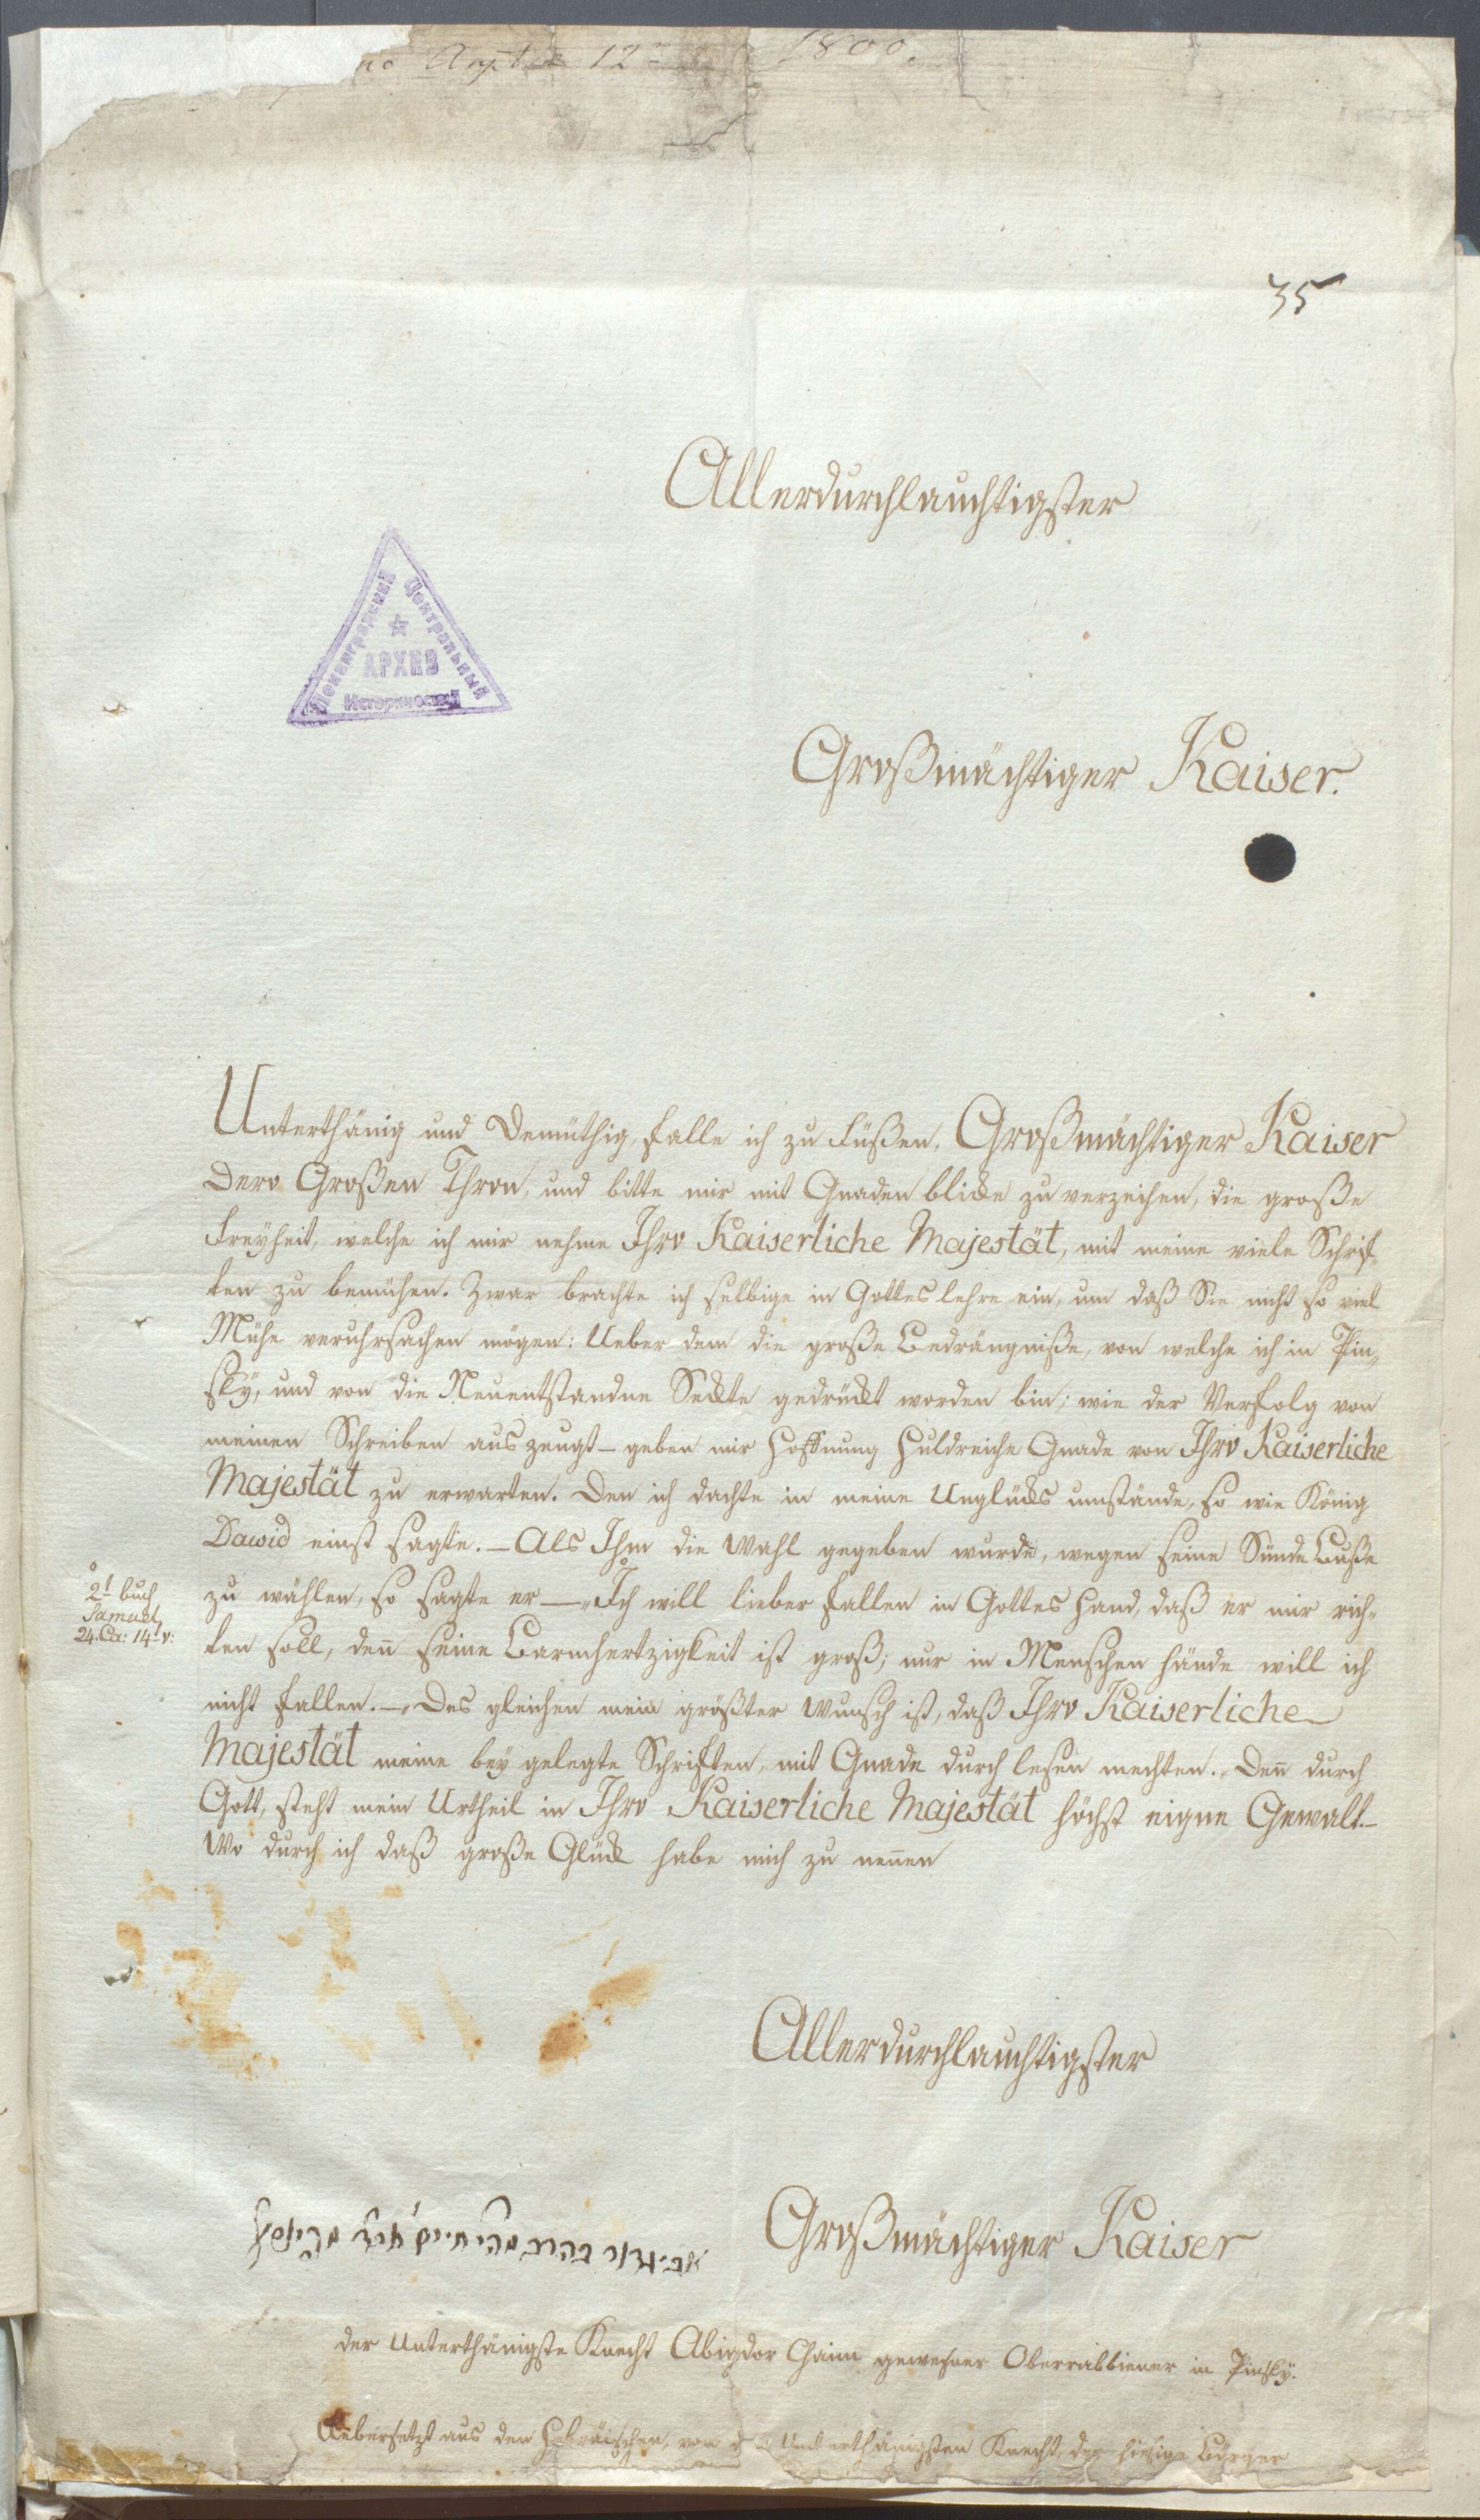 1800.
35
Allerdurchlauchtigster
Ленинградский Центральный
АРХИВ
Исторический
Großmächtiger Kaiser.
Unterthänig und Demüthig, falle ich zu Füßen, Großmächtiger Kaiser
Dero Großen Thron, und bitte mir mit Gnaden blicke zu verzeihen, die große
Freyheit, welche ich mir nehme Ihro Kaiserliche Majestät, mit meine viele Schrif„
ten zu bemühen. Zwar brachte ich selbige in Gottes lehre ein, um daß Sie nicht so viel
Mühe veruhrsachen mögen: Ueber dem die große Bedrängniße, von welche ich in Pin„
sky, und von die Neuentstandne Seckte gedrückt worden bin; wie der Verfolg von
meinen Schreiben aus zeugt – geben mir Hoffnung Huldreiche Gnade von Ihro Kaiserliche
Majestät zu erwarten. Den ich dachte in meine Unglücks umstände, so wie König
Dawid einst sagte. – Als Ihm die Wahl gegeben wurde, wegen seine Sünde Buße
2t buch
Samuel,
24. Ca: 14t v:
zu wählen, so sagte er — „Ich will lieber fallen in Gottes Hand, daß er mir rich„
ten soll, deñ seine Barmhertzigkeit ist groß; nur in Menschen hände will ich
nicht fallen. –„ Des gleichen mein größter Wunsch ist, daß Ihro Kaiserliche
Majestät meine bey gelegte Schriften, mit Gnade durch lesen mechten. Deñ durch
Gott, steht mein Urtheil in Ihro Kaiserliche Majestät höchst eigne Gewalt. –
Wo durch ich daß große Glück habe mich zu neñen
Allerdurchlauchtigster
Großmächtiger Kaiser
אביגדור בהרב מהר חיים
der Unterthänigste Knecht Abigdor Chaim gewesner Oberrabbiener in Pinsky.
Uebersetzt aus den Hebräischen, von Unterthänigsten Knecht, der hiesige Bürger